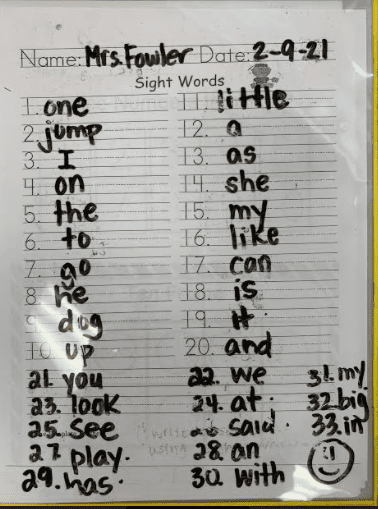 Name: Mrs. Fowler Date: 2-9-21
Sight Words
1. one
2. jump
3. I
4. on
5. the
6. to
7. go
8. he
9. dog
10. up
11. little
12. a
13. as
14. she
15. my
16. like
17. can
18. is
19. it
20. and
21. you 22. we 31. my
23. look 24. at. 32. big
25. see 26 said. 33. in
27 play. 28. an
29. has. 30. with